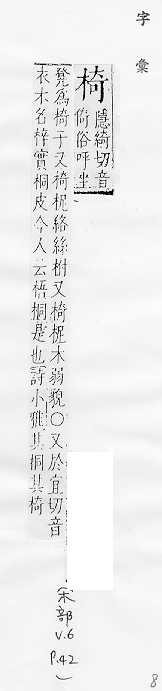 字彙
椅 隱綺切音
倚俗呼坐
凳為椅子又椅柅絡絲柎又椅柅木弱貌○又於宜切音
衣木名梓實桐皮今人云梧桐是也詩小雅其桐其椅
(宋部
v.6
p.42)
8